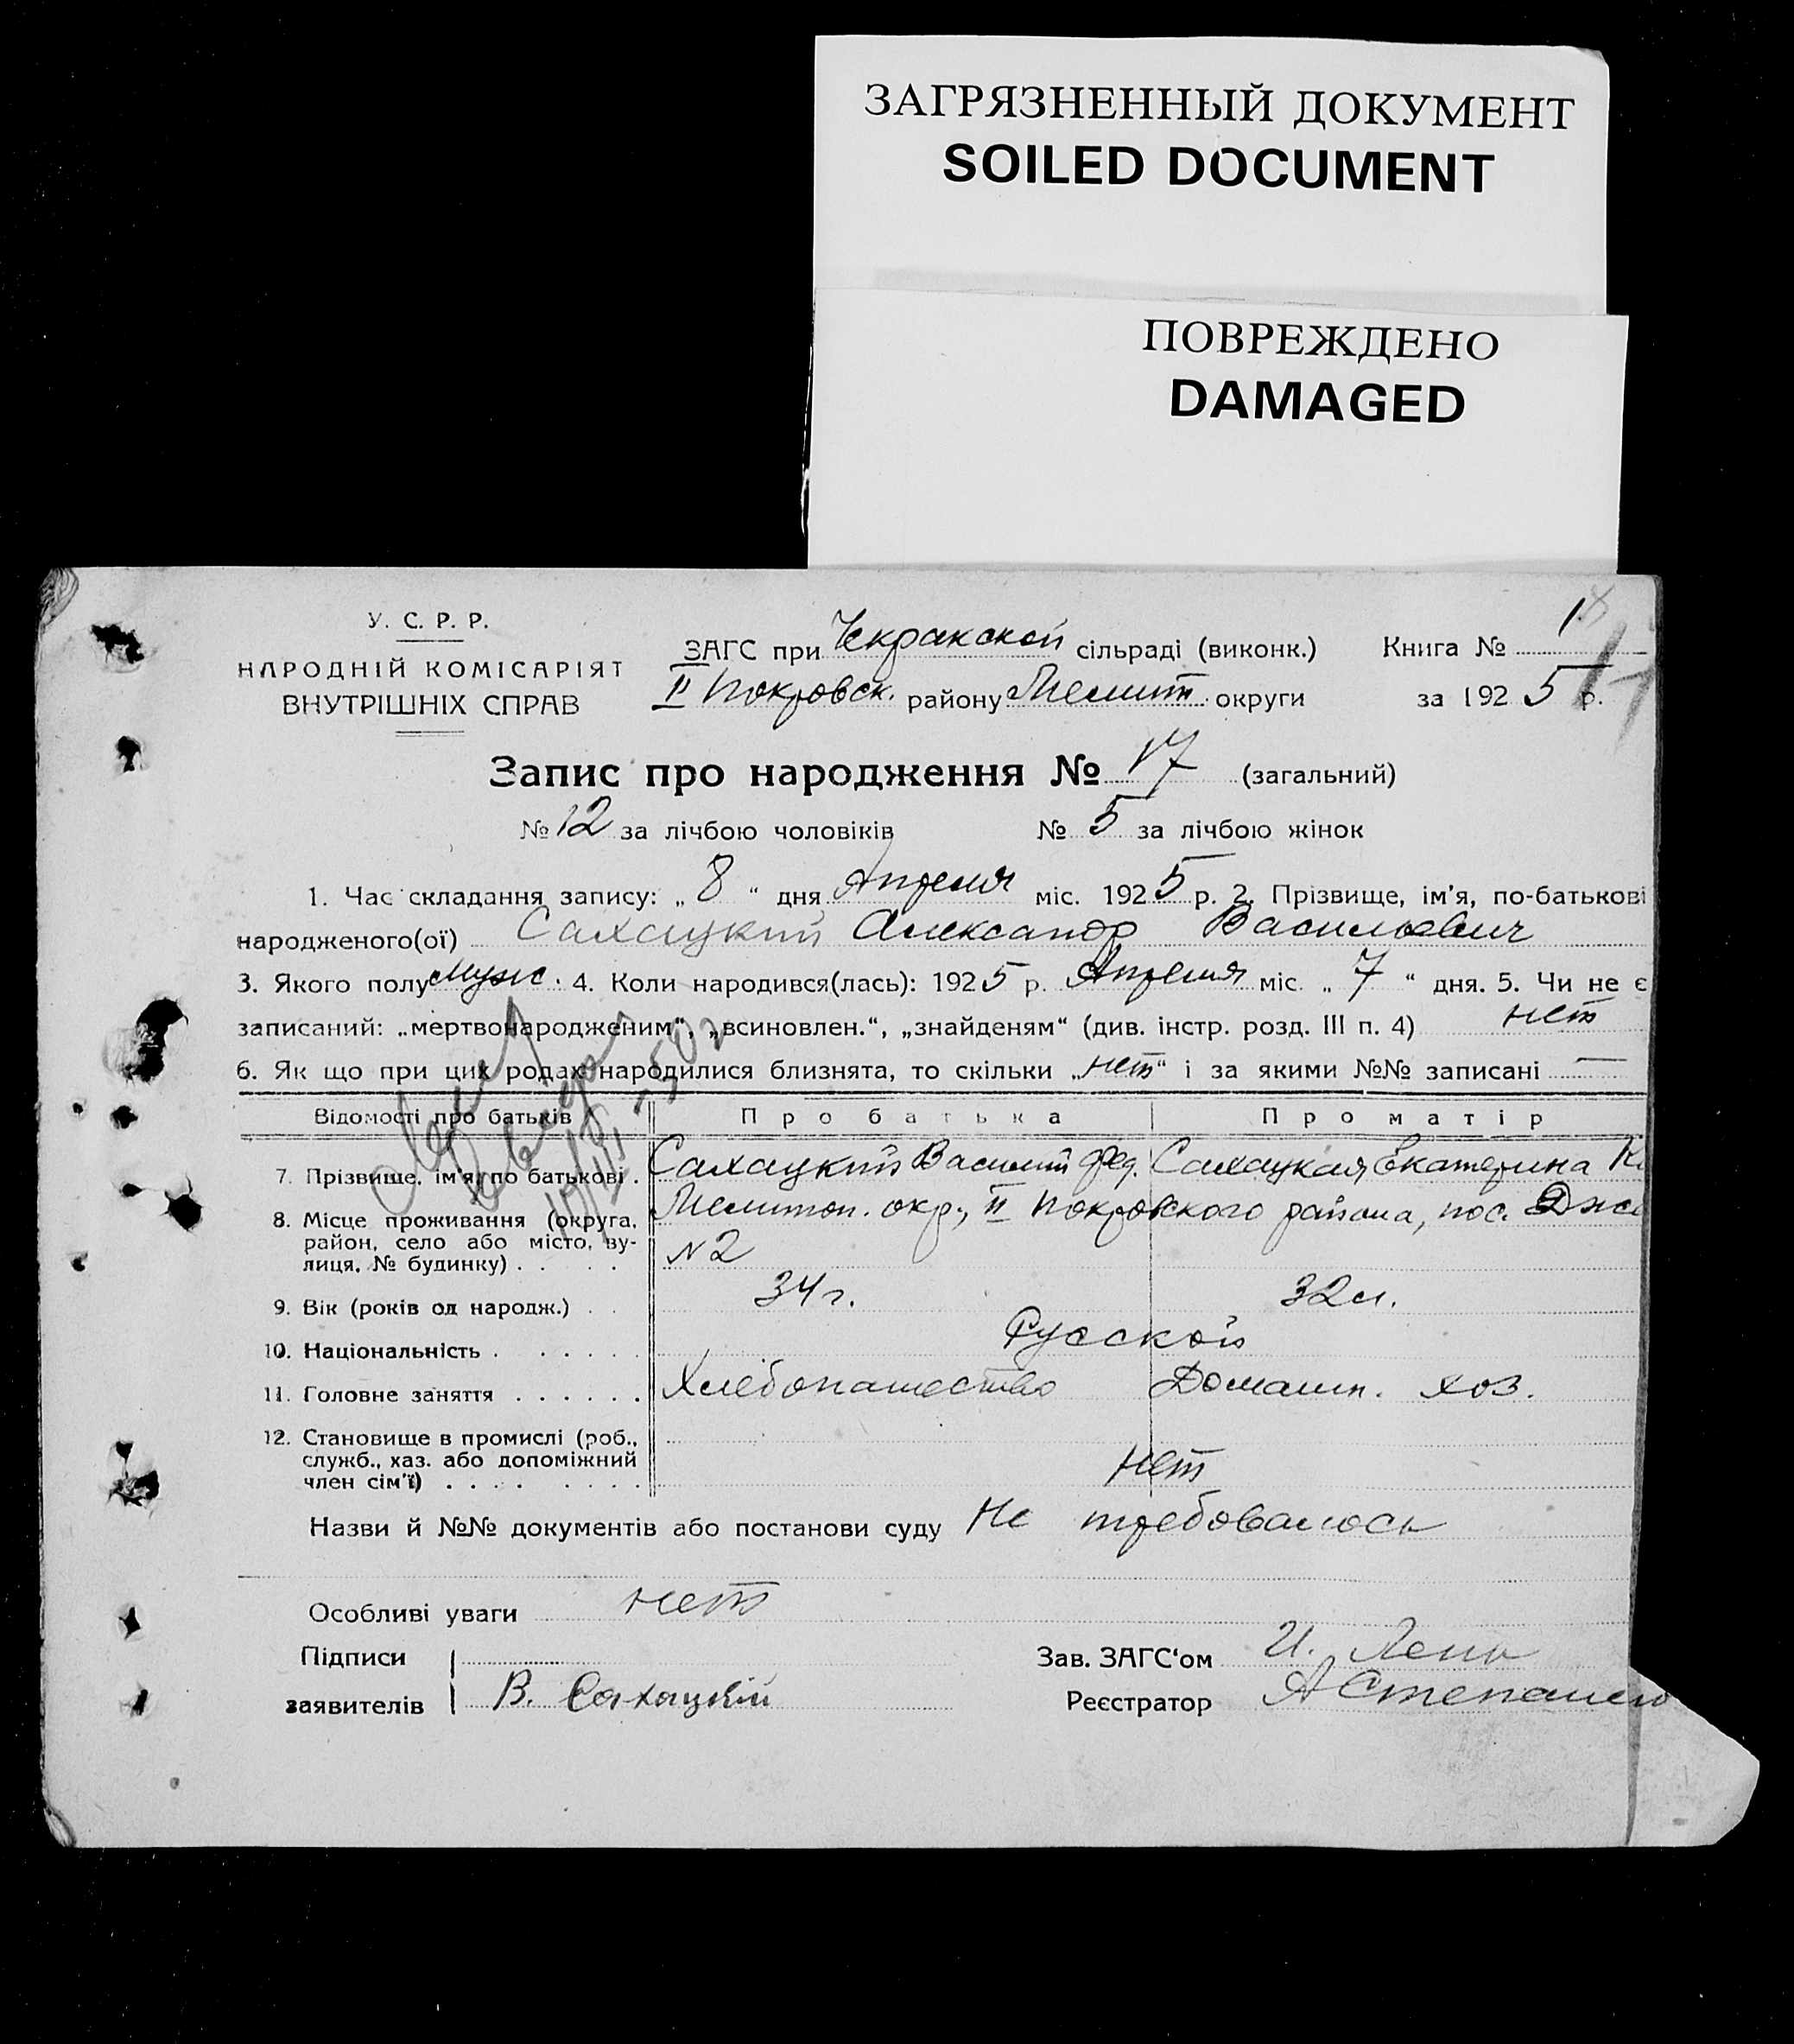 ЗАГРЯЗНЕННЫЙ ДОКУМЕНТ
SOILED DOCUMENT
ПОВРЕЖДЕНО
DAMAGED
У. С. Р. Р.
НАРОДНІЙ КОМІСАРІЯТ
ВНУТРІШНІХ СПРАВ
ЗАГС при Чекракской сільраді (виконк.) Книга № 1
II Покровск. району Мелит. округи за 1925 р.
Запис про народження № 17 (загальний)
№ 12 за лічбою чоловіків № 5 за лічбою жінок
1. Час складання запису: „ 8 “ дня Апреля міс. 1925 р. 2. Прізвище, ім'я, по-батькові
народженого(ої) Сахацкий Александр Васильевич
3. Якого полу муж. 4. Коли народився(лась): 1925 р. Апреля міс. „ 7 “ дня. 5. Чи не є
записаний: „мертвонародженим“, „всиновлен.“, „знайденям“ (див. інстр. розд. III п. 4) нет
6. Як що при цих родах народилися близнята, то скільки „нет“ і за якими №№ записані —
Відомості про батьків Про батька Про матір
7. Прізвище, ім'я, по батькові . Сахацкий Василий Фед. Сахацкая Екатерина
8. Місце проживання (округа, район, село або місто, вулиця, № будинку) . . . . Мелитоп. окр., II Покровского района, пос.
№2
9. Вік (років од народж.) . . 34 г. 32 л.
10. Національність . . . . . . Русской
11. Головне заняття . . . . . . Хлебопашество Домашн. хоз.
12. Становище в промислі (роб.,
служб., хаз. або допоміжний
член сім'ї) . . . . . . . . нет
Назви й №№ документів або постанови суду Не требовалось
Особливі уваги нет
Підписи Зав. ЗАГС'ом И.
заявителів В. Сахацкій Реєстратор А Степаненко